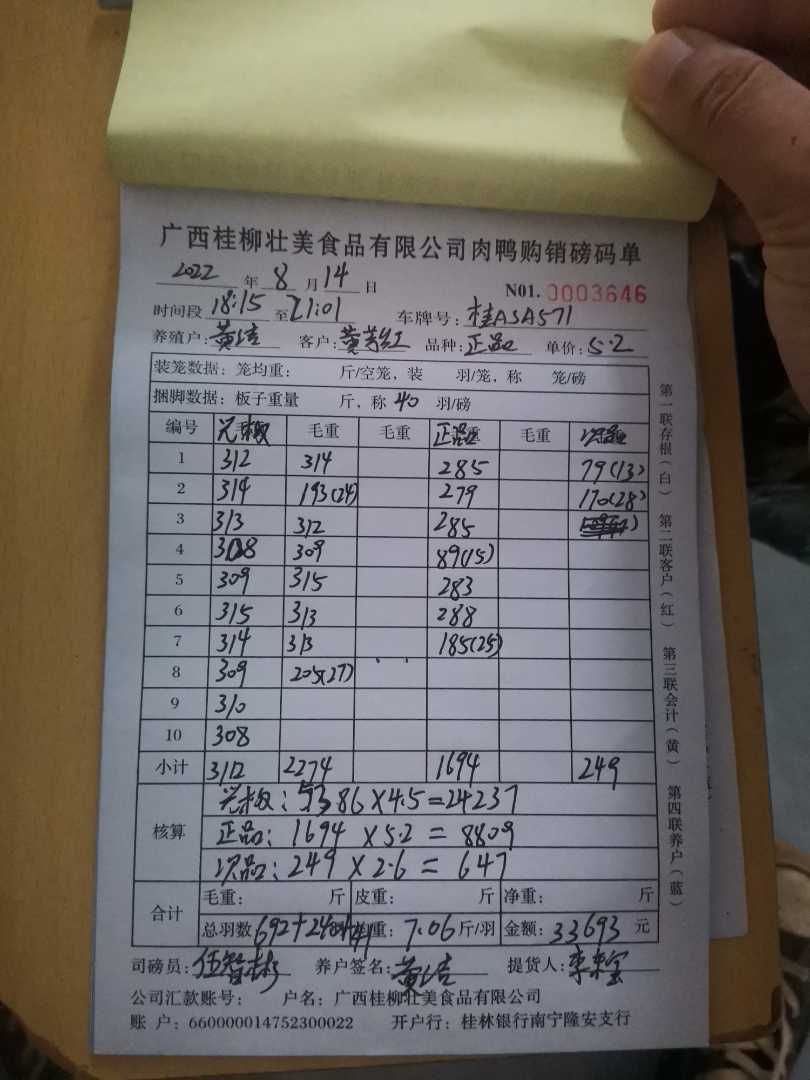 广西桂柳壮美食品有限公司肉鸭购销磅码单
2022 年 8 月 14 日 N01. 0003646
时间段 18:15 至 21:01 车牌号: 桂ASA571
养殖户: 黄 客户: 黄 红 品种: 正品 单价: 5.2
装笼数据: 笼均重: 斤/空笼, 装 羽/笼, 称 笼/磅
捆脚数据: 板子重量 斤, 称 40 羽/磅
编号 毛重 毛重 正品 毛重 次品
1 312 314 285 79(13)
2 314 193(24) 279 170(28)
3 313 312 285
4 308 309 89(15)
5 309 315 283
6 315 313 288
7 314 313 185(25)
8 309 205(27)
9 310
10 308
小计 3112 2274 1694 249
核算
: 5386×4.5=24237
正品: 1694×5.2=8809
次品: 249×2.6=647
合计
毛重: 斤 皮重: 斤 净重: 斤
总羽数 692+ 重: 7.06 斤/羽 金额: 33693 元
司磅员: 伍智彬 养户签名: 黄 提货人: 李 宝
公司汇款账号: 户名: 广西桂柳壮美食品有限公司
账 户: 660000014752300022 开户行: 桂林银行南宁隆安支行
第一联存根(白)
第二联客户(红)
第三联会计(黄)
第四联养户(蓝)